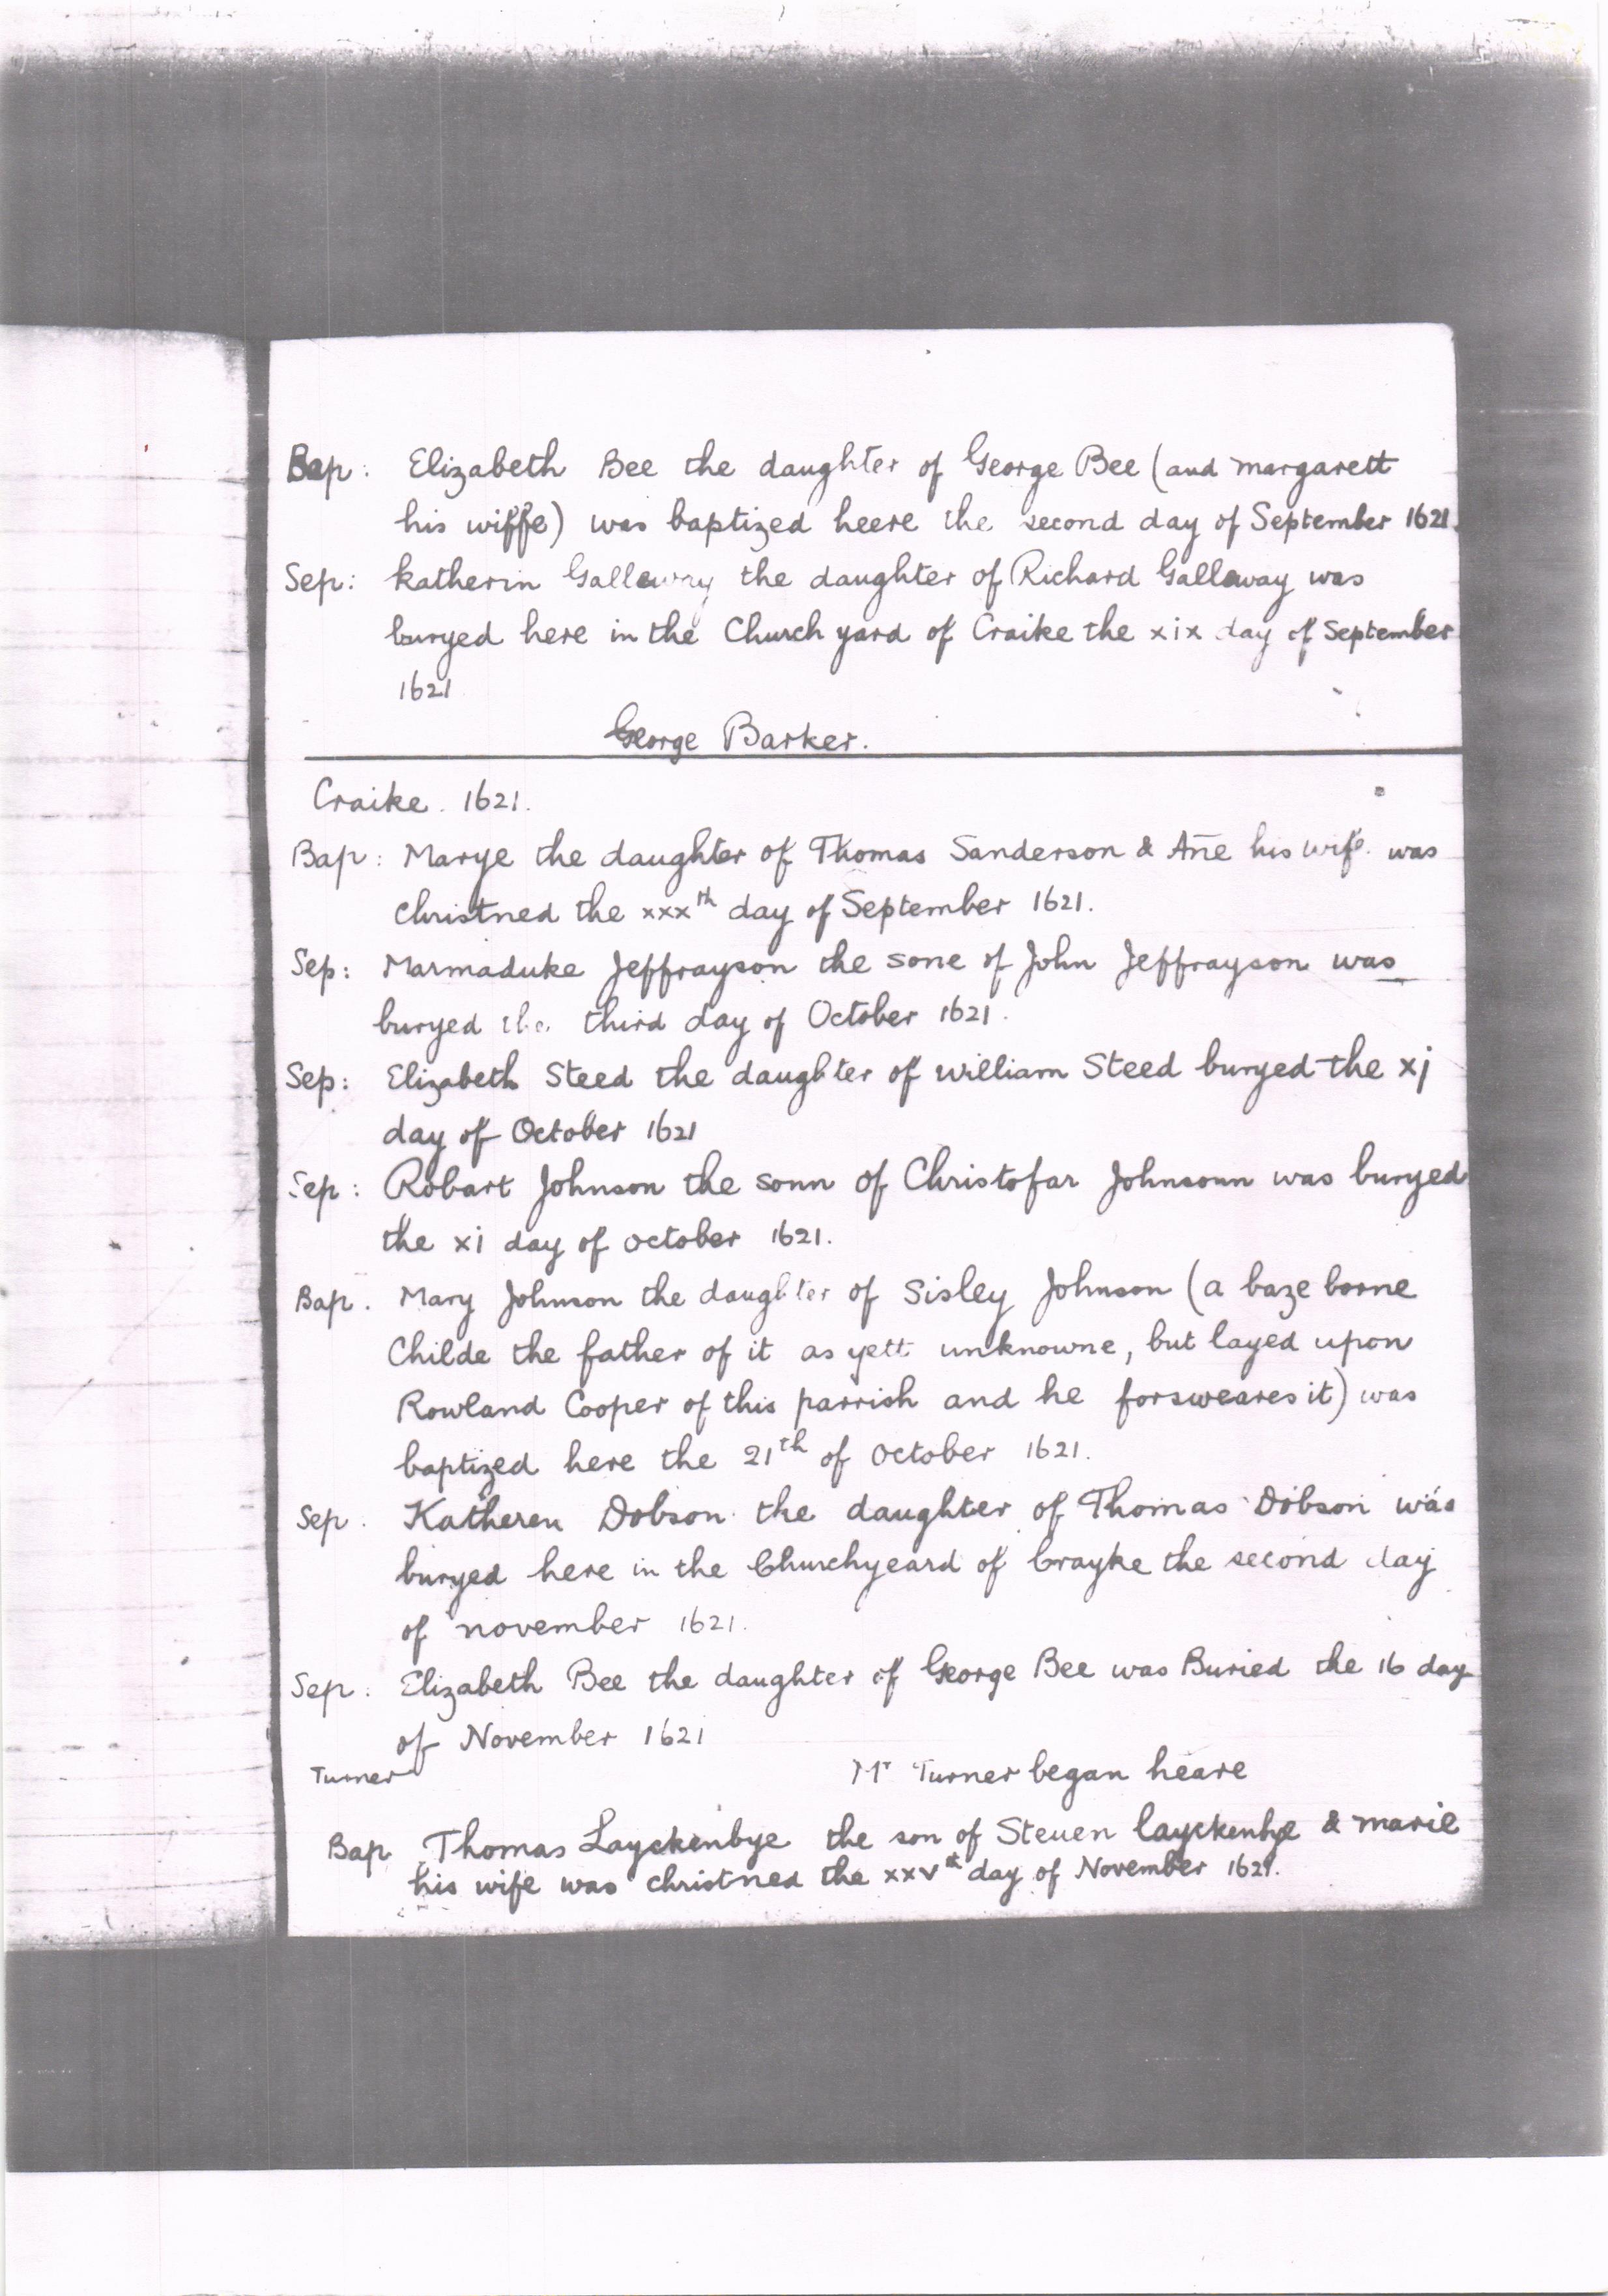 Bap: Elizabeth Bee the daughter of George Bee (and margarett
his wiffe) was baptized heere the second day of September 1621.
Sep: katherin Gallaway the daughter of Richard Gallaway was
buryed here in the Church yard of Craike the xix day of September
1621
George Barker.
Craike. 1621.
Bap: Marye the daughter of Thomas Sanderson & Añe his wife was
christned the xxxth day of September 1621.
Sep: Marmaduke Jeffrayson the sone of John Jeffrayson was
buryed the third day of October 1621.
Sep: Elizabeth Steed the daughter of william Steed buryed the xj
day of October 1621
Sep: Robart Johnson the sonn of Christofar Johnsonn was buryed
the xi day of october 1621.
Bap. Mary Johnson the daughter of Sisley Johnson (a baze borne
Childe the father of it as yett unknowne, but layed upon
Rowland Cooper of this parrish and he forsweares it) was
baptized here the 21th of October 1621.
Sep. Katheren Dobson the daughter of Thomas Dobson was
buryed here in the Churchyeard of Crayke the second day
of november 1621.
Sep. Elizabeth Bee the daughter of George Bee was Buried the 16 day
of November 1621
Turner Mr Turner began heare
Bap Thomas Layckenbye the son of Steuen layckenbye & marie
his wife was christned the xxvst day of November 1621.